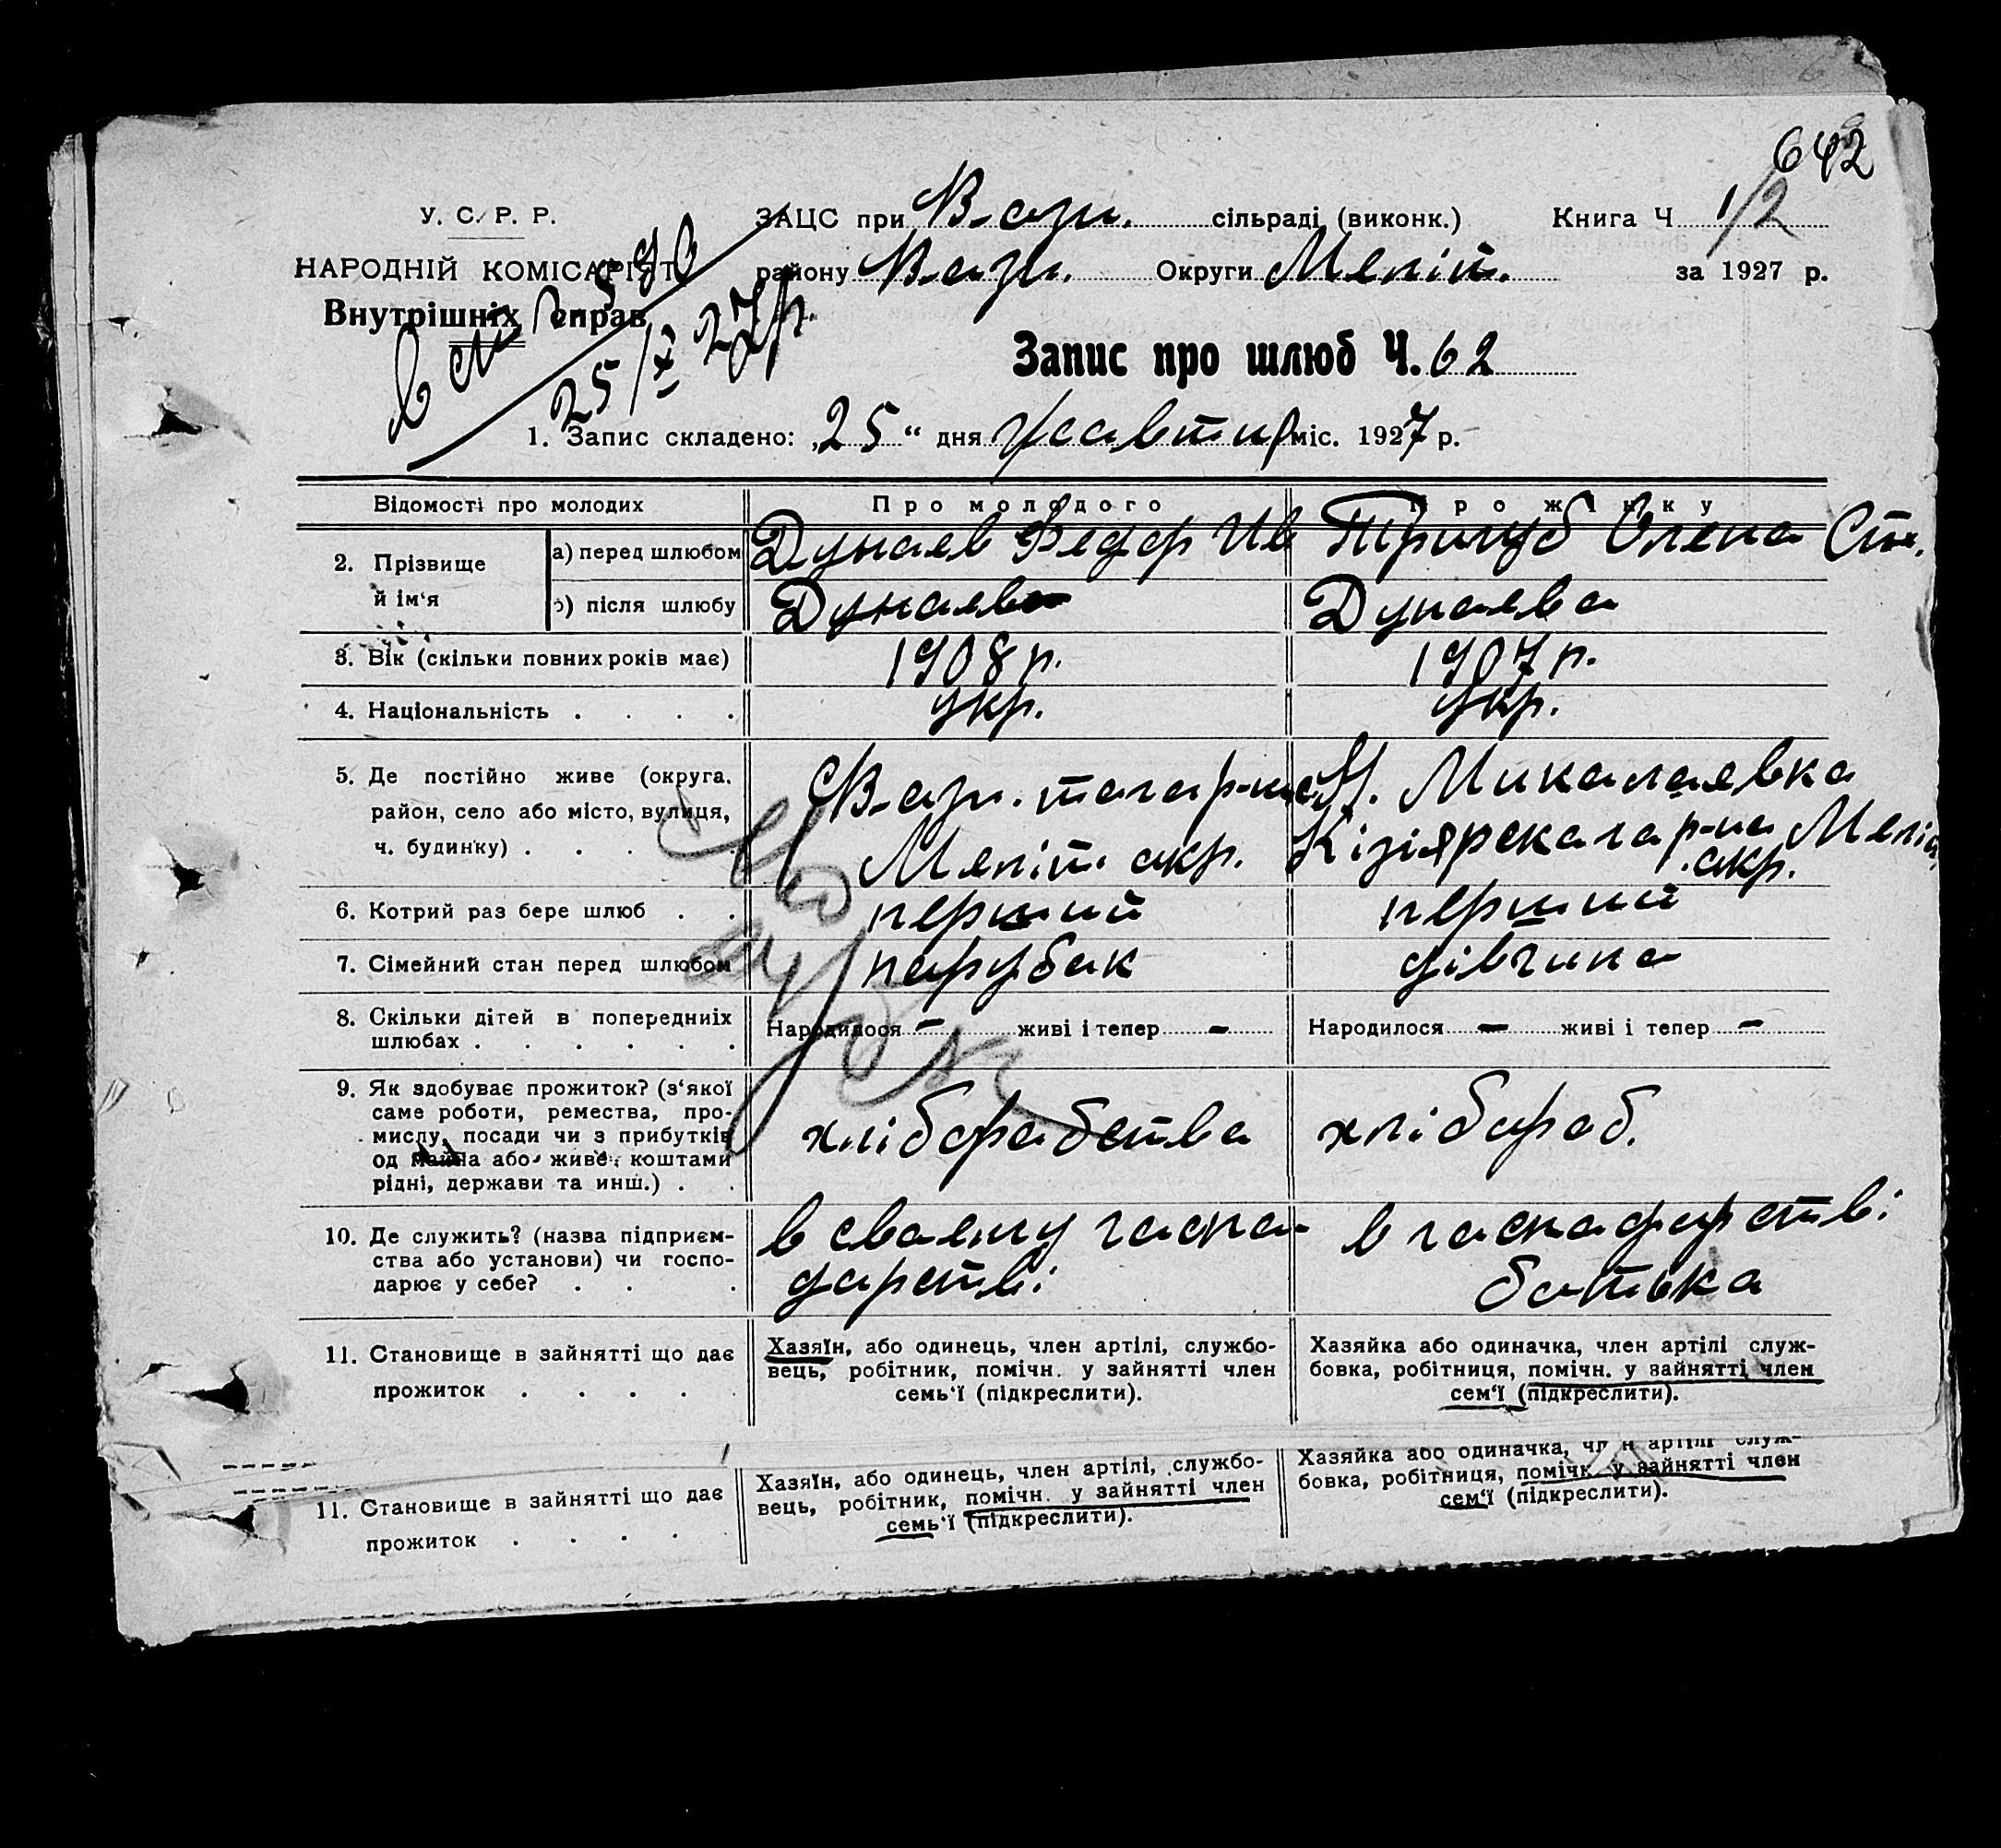 642
У. С. Р. Р.
ЗАЦС при В-Озн. сільраді (виконк.) Книга Ч 1/2
НАРОДНІЙ КОМІСАРІЯТ
району В-Озн. Округи Меліт. за 1927 р.
Внутрішніх Справ
25/X 27р.
Запис про шлюб Ч. 62
1. Запис складено: „25“ дня жовтня міс. 1927 р.
Відомості про молодих Про молодого Про жінку
2. Прізвище й ім'я
а) перед шлюбом Дунаев Федор Ив Тригуб Олена Сте.
б) після шлюбу Дунаев Дунаева
3. Вік (скільки повних років має) 1908 р. 1907 р.
4. Національність . . . . укр. укр.
5. Де постійно живе (округа, район, село або місто, вулиця, ч. будинку) . . . .
Меліт. окр.
М. Миколаевка
Кізіярского р-на Меліт.
окр.
6. Котрий раз бере шлюб . . перший перший
7. Сімейний стан перед шлюбом парубак дівчина
8. Скільки дітей в попередниіх шлюбах . . . . . . Народилося – живі і тепер – Народилося – живі і тепер –
9. Як здобуває прожиток? (з'якої
саме роботи, ремества, про-
мислу, посади чи з прибутків
од майна або живе коштами
рідні, держави та инш.) . .
хліборобство хлібороб.
10. Де служить? (назва підприєм-
ства або установи) чи госпо-
дарює у себе? . . .
в своему госпо-
дарстві
в господарстві
батька
11. Становище в зайнятті що дає
прожиток . . . . .
Хазяїн, або одинець, член артілі, службо-
вець, робітник, помічн. у зайнятті член
семь'ї (підкреслити).
Хазяйка або одиначка, член артілі служ-
бовка, робітниця, помічн. у зайнятті член
сем'ї (підкреслити).
11. Становище в зайнятті що дає
прожиток . . . .
Хазяїн, або одинець, член артілі, службо-
вець, робітник, помічн. у зайнятті член
семь'ї (підкреслити).
Хазяйка або одиначка, член артілі служ-
бовка, робітниця, помічн. у зайнятті член
сем'ї (підкреслити).